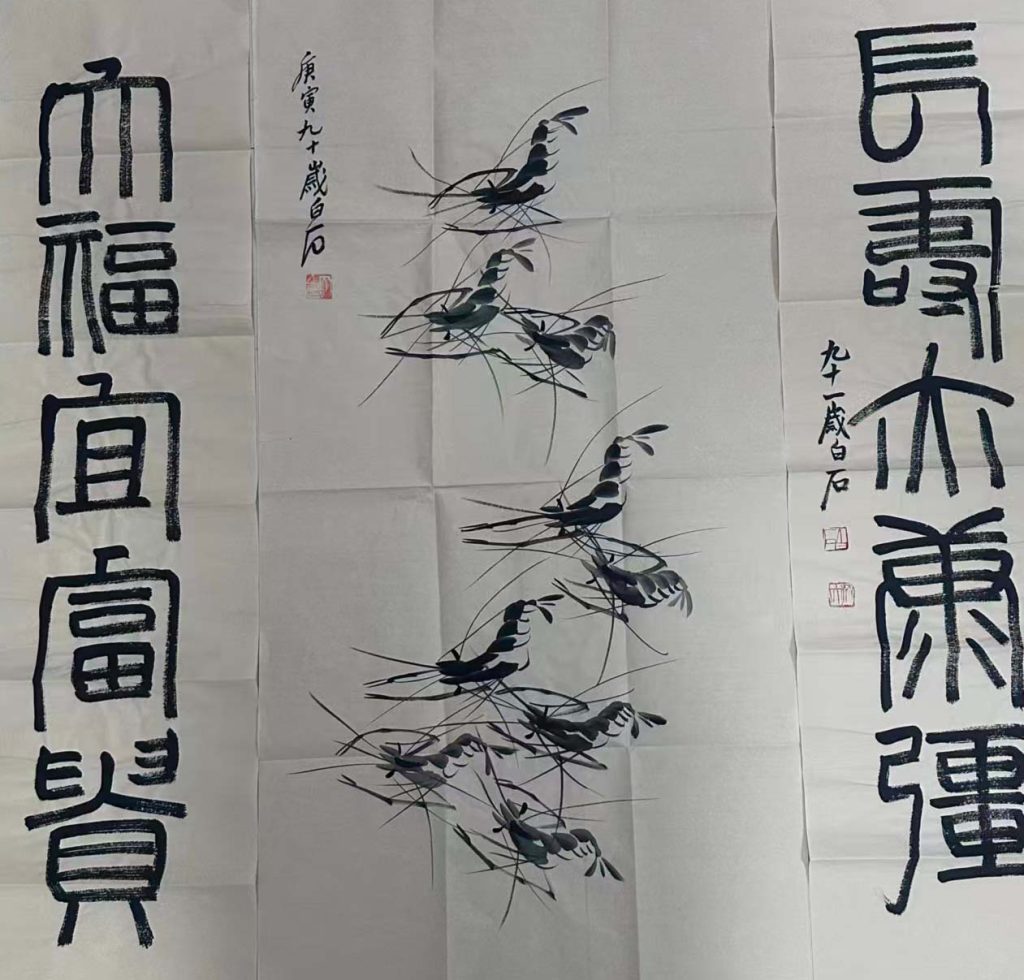 長壽亦康彊
九十一歲白石
庚寅九十歲白石
大福宜富貴